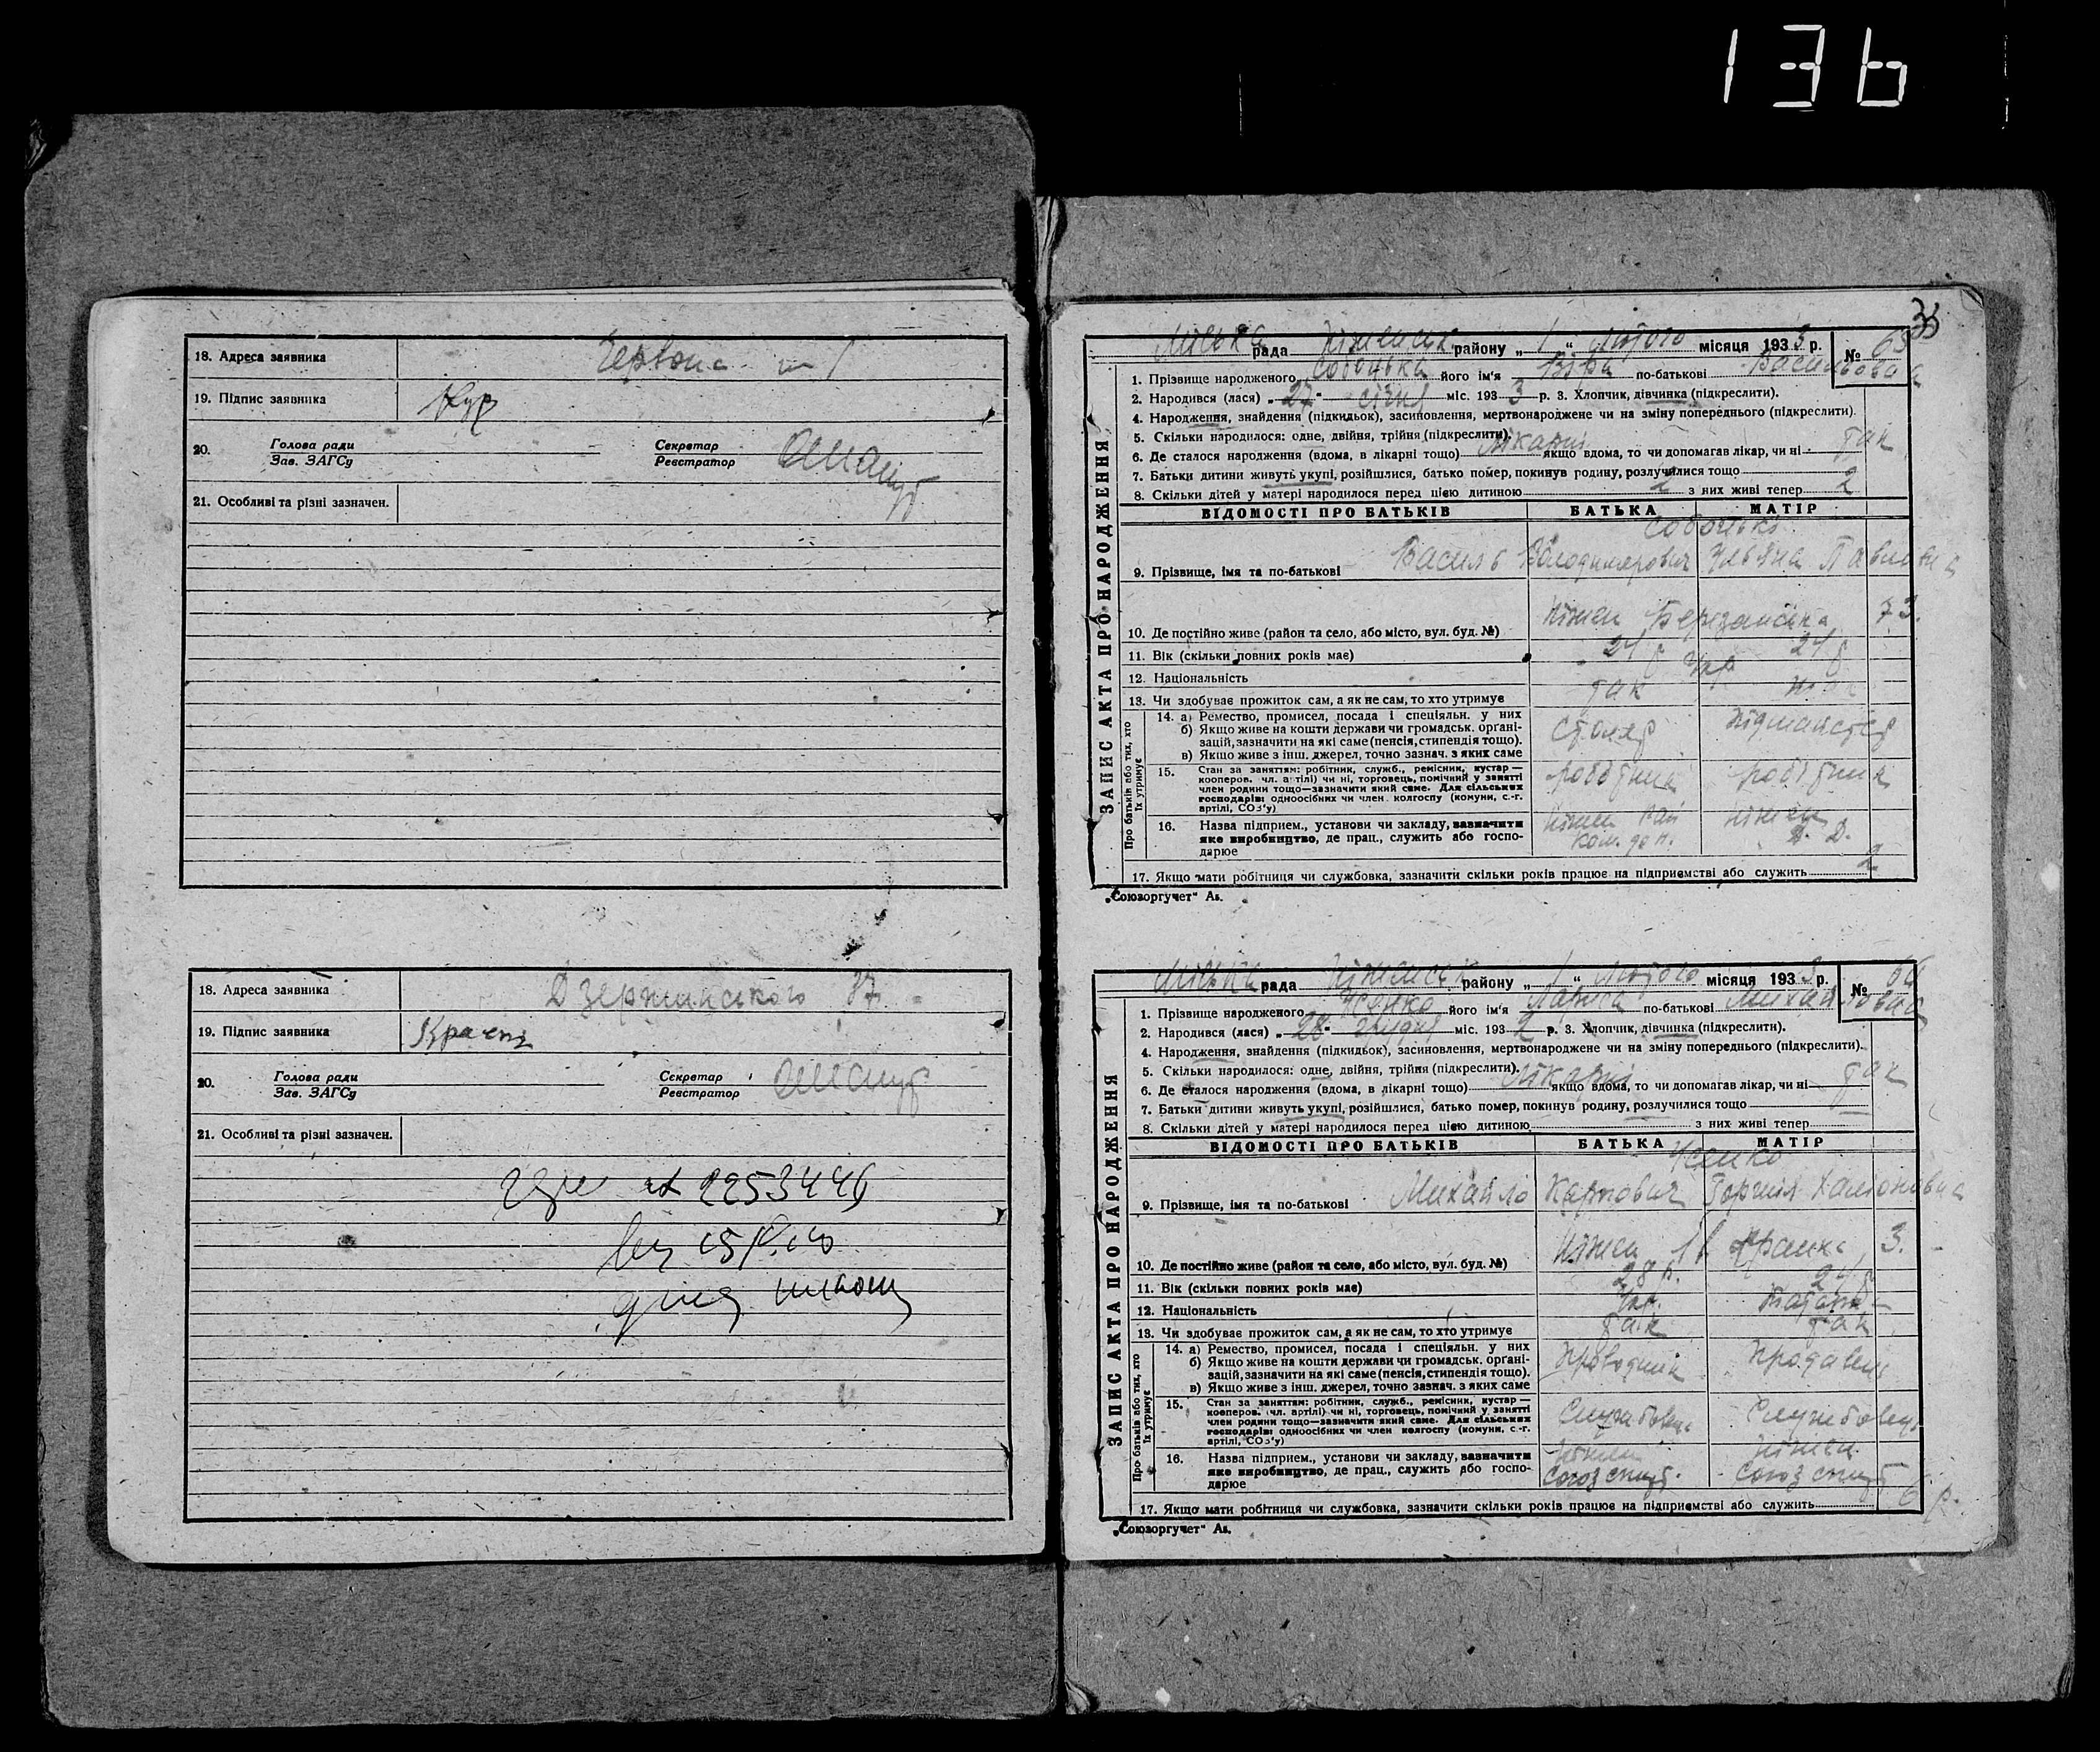 136
18. Адреса заявника Червона
19. Підпис заявника
20. Голова ради Секретар
Зав. ЗАГСу Реєстратор
21. Особливі та різні зазначен.
18. Адреса заявника Дзержинського 37
19. Підпис заявника
20. Голова ради Секретар
Зав. ЗАГСу Реєстратор
21. Особливі та різні зазначен.
№ 2253446
35
ЗАПИС АКТА ПРО НАРОДЖЕННЯ
Міська рада Ніженськ району „ 1 “ Лютого місяця 193 3 р. № 65
1. Прізвище народженого його ім'я Віра по-батькові Васильовна
2. Народився (лася) „ 27 “ січня міс. 193 3 р. 3. Хлопчик, дівчинка (підкреслити).
4. Народження, знайдення (підкидьок), засиновлення, мертвонароджене чи на зміну попереднього (підкреслити).
5. Скільки народилося: одне, двійня, трійня (підкреслити).
6. Де сталося народження (вдома, в лікарні тощо) лікарні якщо вдома, то чи допомагав лікар, чи ні так
7. Батьки дитини живуть укупі, розійшлися, батько помер, покинув родину, розлучилися тощо
8. Скільки дітей у матері народилося перед цією дитиною 2 з них живі тепер 2
ВІДОМОСТІ ПРО БАТЬКІВ БАТЬКА МАТІР
9. Прізвище, імя та по-батькові Василь Володимирович Уляна Павловна
10. Де постійно живе (район та село, або місто, вул. буд. №) Ніжен Березанська 73.
11. Вік (скільки повних років має) 24 р 24 р
12. Національність Укр
13. Чи здобуває прожиток сам, а як не сам, то хто утримує так
Про батьків або тих, хто їх утримує
14. а) Ремество, промисел, посада і спеціяльн. у них
б) Якщо живе на кошти держави чи громадськ. органі-
зацій, зазначити на які саме (пенсія, стипендія тощо).
в) Якщо живе з інш. джерел, точно зазнач. з яких саме
столяр підмайстер
15. Стан за заняттям: робітник, служб., ремісник, кустар —
кооперов. чл. артілі) чи ні, торговець, помічний у занятті
член родини тощо—зазначити який саме. Для сільських
господарів: одноосібних чи член колгоспу (комуни, с.-г.
артілі, СОЗ'у)
робітник робітник
16. Назва підприєм., установи чи закладу, зазначити
яке виробництво, де прац., служить або госпо-
дарює
Ніжен Ніжен
17. Якщо мати робітниця чи службовка, зазначити скільки років працює на підприємстві або служить 2
„Союзоргучет“ Аs.
ЗАПИС АКТА ПРО НАРОДЖЕННЯ
Міська рада Ніженськ району „ 1 “ Лютого місяця 193 3 р. № 66
1. Прізвище народженого Усенко його ім'я Лариса по-батькові Михайловна
2. Народився (лася) „ 28 “ грудня міс. 193 2 р. 3. Хлопчик, дівчинка (підкреслити).
4. Народження, знайдення (підкидьок), засиновлення, мертвонароджене чи на зміну попереднього (підкреслити).
5. Скільки народилося: одне, двійня, трійня (підкреслити).
6. Де сталося народження (вдома, в лікарні тощо) лікарні якщо вдома, то чи допомагав лікар, чи ні так
7. Батьки дитини живуть укупі, розійшлися, батько помер, покинув родину, розлучилися тощо
8. Скільки дітей у матері народилося перед цією дитиною з них живі тепер
ВІДОМОСТІ ПРО БАТЬКІВ БАТЬКА МАТІР
Усенко
9. Прізвище, імя та по-батькові Михайло Карпович
10. Де постійно живе (район та село, або місто, вул. буд. №) Ніжен Франка 3.
11. Вік (скільки повних років має) 28 р. 24 р
12. Національність Укр.
13. Чи здобуває прожиток сам, а як не сам, то хто утримує так так
Про батьків або тих, хто їх утримує
14. а) Ремество, промисел, посада і спеціяльн. у них
б) Якщо живе на кошти держави чи громадськ. органі-
зацій, зазначити на які саме (пенсія, стипендія тощо).
в) Якщо живе з інш. джерел, точно зазнач. з яких саме
Проводник Продавец
15. Стан за заняттям: робітник, служб., ремісник, кустар —
кооперов. чл. артілі) чи ні, торговець, помічний у занятті
член родини тощо—зазначити який саме. Для сільських
господарів: одноосібних чи член колгоспу (комуни, с.-г.
артілі, СОЗ'у)
Службовец Службовец
16. Назва підприєм., установи чи закладу, зазначити
яке виробництво, де прац., служить або госпо-
дарює
Ніжен Ніжен
Союзспирт. Союзспирт
17. Якщо мати робітниця чи службовка, зазначити скільки років працює на підприємстві або служить 6 р.
„Союзоргучет“ Аs.